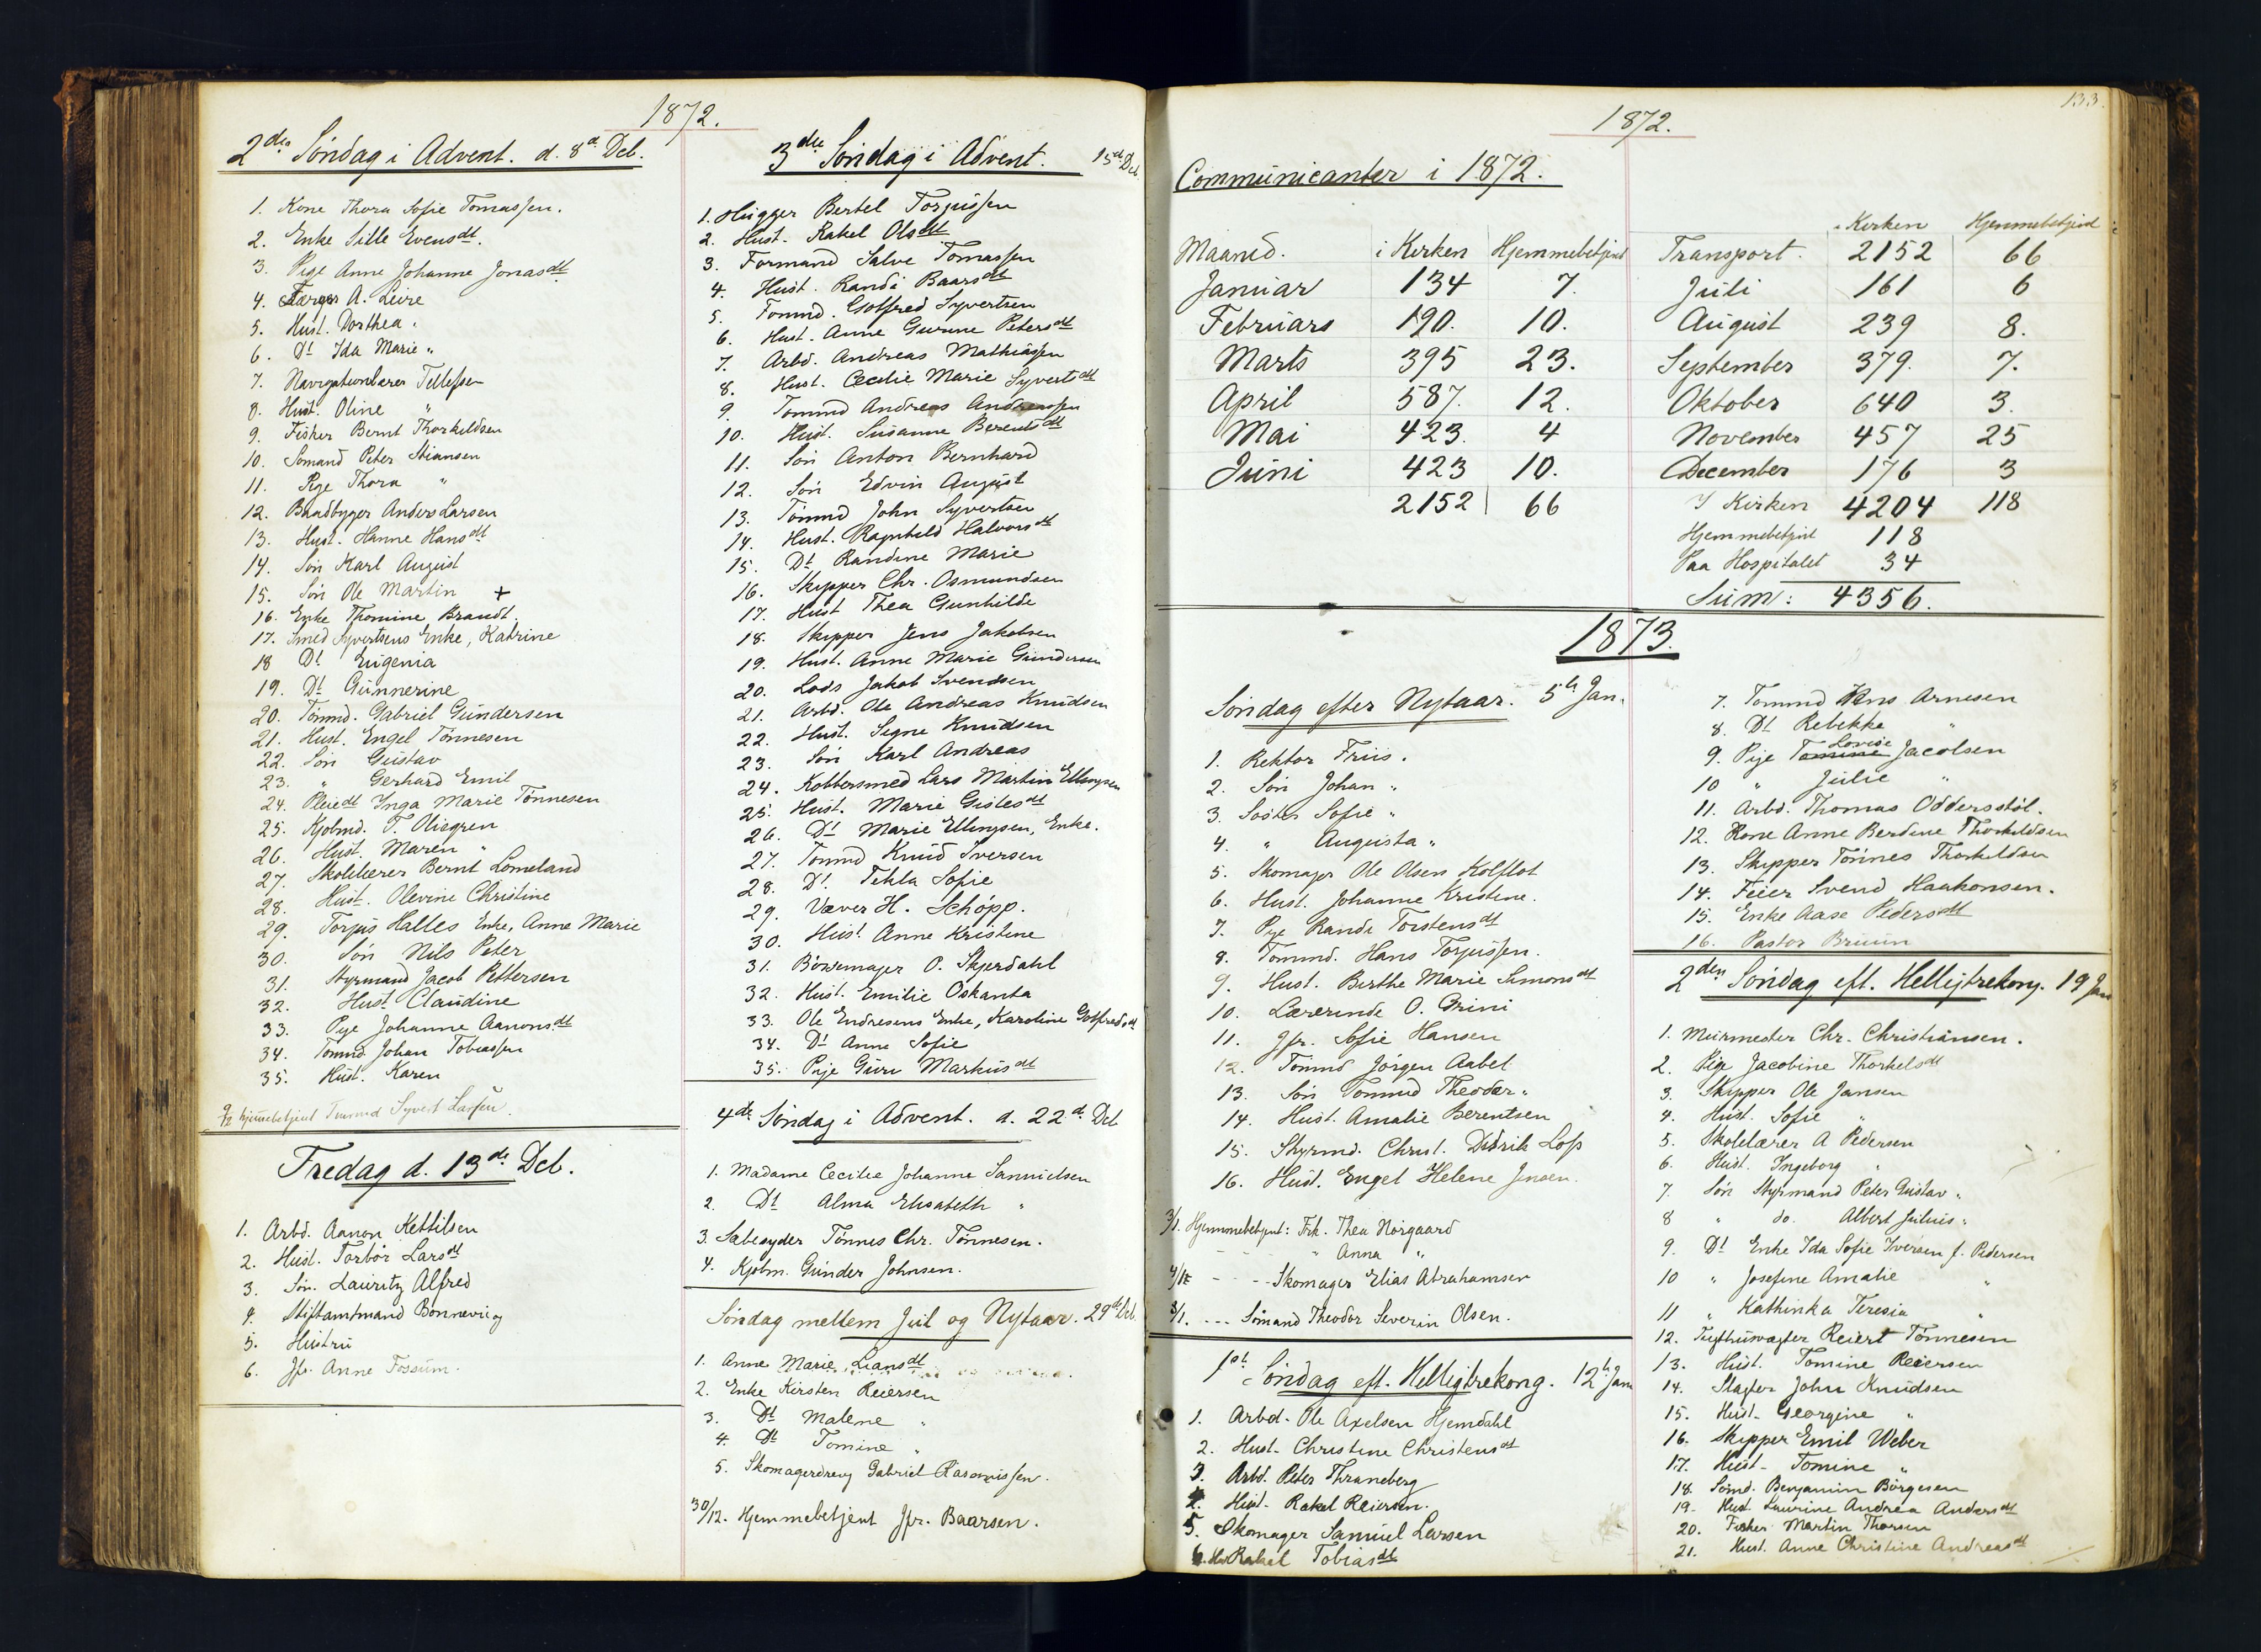 1872.
2den Söndag i Advent. d. 8de Deb.
1. Kone Thora Sofie Tomassen.
2. Enke Sille Evensdt.
3. Pige Anne Johanne Jonasdt
4. Farger A. Leire
5. Hust. Dorthea "
6. Dt Ida Marie "
7. Navigationlærer Tellefsen
8. Hust. Oline "
9. Fisker Bernt Thorkeldsen
10. Sømand Peter Stiansen
11. Pige Thora "
12. Baadbyger Anders Larsen
13. Hust. Hanne Hansdt
14. Søn Karl August
15. Søn Ole Martin +
16. Enke Thomine Brandt.
17. Smed Syvertsens Enke, Katrine
18 Dt Eugenia
19. Dt Gunnerine
20. Tømmd. Gabriel Gundersen
21. Hust. Engel Tønnesen
22. Søn Gustav
23. " Gerhard Emil
24. Pleiedt Inga Marie Tønnesen
25. Kjøbmd. T. Olsgren
26. Hust. Maren "
27. Skolelærer Bernt Lomeland
28. Hust. Olevine Christine
29. Torjus Halles Enke, Anne Marie
30. Søn Nils Peter
31. Styrmand Jacob Pettersen
32. Hust Claudine
33. Pige Johanne Aanonsdt
34. Tømmd. Johan Tobiassen
35. Hust. Karen
9/12 hjemmebetjent Tømmd Syvert Larsen.
Fredag d. 13de Deb.
1. Arbd. Aanon Kettilsen
2. Hust. Torbør Larsdt
3. Søn. Lauritz Alfred
4. Stiftamtmand Bonnevie
5. Hustru
6. Jfr. Anne Fossum.
3die Söndag i Advent. 15de Deb.
1. Hugger Bertel Torjussen
2. Hust. Rakel Olsdt
3. Formand Salve Tomassen
4. Hust. Randi Baarsdt
5. Tommd. Gotfred Syvertsen
6. Hust. Anne Gurine Petersdt
7. Arbd. Andreas Mathiassen
8. Hust. Cecilie Marie Syvertsdt
9. Tommd Andreas Andreassen
10. Hust. Susanne Berentsdt
11. Søn Anton Bernhard
12. Søn Edvin August
13. Tømmd John Syvertsen
14. Hust. Ragnhild Halvorsdt
15. Dt Randine Marie
16. Skipper Chr. Osmundsen
17. Hust Thea Gunhilde
18. Skipper Jens Jakobsen
19. Hust. Anne Marie Gundersen
20. Lods Jakob Svendsen
21. Arbd. Ole Andreas Knudsen
22. Hust. Signe Knudsen
23. Søn Karl Andreas
24. Kobbersmed Lars Martin Ellingsen
25. Hust. Marie Gislesdt
26. Dt Marie Ellingsen, Enke.
27. Tommd Knud Iversen
28. Dt. Tekla Sofie
29. Væver H. Schöpp.
30. Hust. Anne Kristine
31. Bössemager O. Skjerdahl
32. Hust. Emilie Oskanta
33. Ole Endresens Enke, Karoline Gotfredsdt
34. Dt Anne Sofie
35. Pige Guru Markusdt
4de Söndag i Advent. d. 22de Deb
1. Madame Cecilie Johanne Samuelsen
2. Dt Alma Elisabeth "
3. Sæbesyder Tönnes Chr. Tönnesen.
4. Kjøbm. Gunder Johnsen.
Söndag mellem Jul og Nytaar. 29de Deb.
1. Anne Marie Liansdt
2. Enke Kirsten Reiersen
3. Dt Malene "
4. Dt Tomine "
5. Skomagerdreng Gabriel Rasmussen.
30/12. Hjemmebetjent Jfr. Baarsen.
133.
1872.
Communicanter i 1872.
Maaned. i Kirken Hjemmebetjent
Januar 134 7.
Februars 190. 10.
Marts 395 23.
April 587. 12.
Mai 423. 4
Juni 423 10.
2152 66
i Kirken Hjemmebetjent
Transport. 2152 66
Juli 161 6
August 239 8.
September 379. 7.
Oktober 640 3.
November 457 25
December 176 3
I Kirken 4204 118
Hjemmebetjent 118
Paa Hospitalet 34
Sum: 4356.
1873.
Söndag efter Nytaar. 5te Jan.
1. Rektor Friis.
2. Søn Johan "
3. Søster Sofie "
4. " Augusta "
5. Skomager Ole Olsen Kolflot
6. Hust. Johanne Kristine.
7. Pige Randi Torstensdt
8. Tommd. Hans Torjussen.
9. Hust. Birthe Marie Simonsdt
10. Lærerinde O. Grini
11. Jfr. Sofie Hansen
12. Tömmd Jörgen Aabel
13. Søn Tommd Theodor "
14. Hust. Amalie Berentsen
15. Styrmd. Christ. Didrik Loss
16. Hust. Engel Helene Jensen.
3/1. Hjemmebetjent: Frk. Thea Nörgaard
" Anna "
- - - Skomager Elias Abrahamsen
3/1. - - - Sømand Theodor Severin Olsen.
1ste Söndag eft. Helligtrekong. 12te Jan
1. Arbd. Ole Axelsen Hjemdahl
2. Hust. Christine Christensdt
3. Arbd. Peter Thraneberg
4. Hust. Rakel Reiersen.
5. Skomager Samuel Larsen
6. Hu Rakel Tobiasdt
7. Tommd Jens Arnesen
8. Dt Rebekke "
9. Pige Tomine Lovise Jacobsen
10 " Julie "
11. Arbd. Thomas Oddersstøl.
12. Kone Anne Berdine Thorkildsen
13. Skipper Tönnes Thorkildsen
14. Feier Svend Haakonsen.
15. Enke Aase Pedersdt
16. Pastor Bruun
2den Söndag eft. Helligtrekong. 19 Jan
1. Murmester Chr. Christiansen.
2. Pige Jacobine Thorkelsdt
3. Skipper Ole Jansen
4. Hust. Sofie "
5. Skolelærer A Pedersen
6. Hust. Ingeborg "
7. Søn Styrmand Peter Gustav "
8 " do. Albert Julius "
9. Dt Enke Ida Sofie Iversen f. Pedersen
10 " Josefine Amalie "
11 " Kathinka Teresia "
12. Tugthusvagter Reiert Tönnesen
13. Hust. Tomine Reiersen
14. Slagter John Knudsen
15. Hust. Georgine "
16. Skipper Emil Weber
17. Hust. Tomine "
18. Sømd. Benjamin Börgesen
19. Hust Laurine Andrea Andersdt
20. Fisker Martin Thorsen
21. Hust. Anne Christine Andreasdt